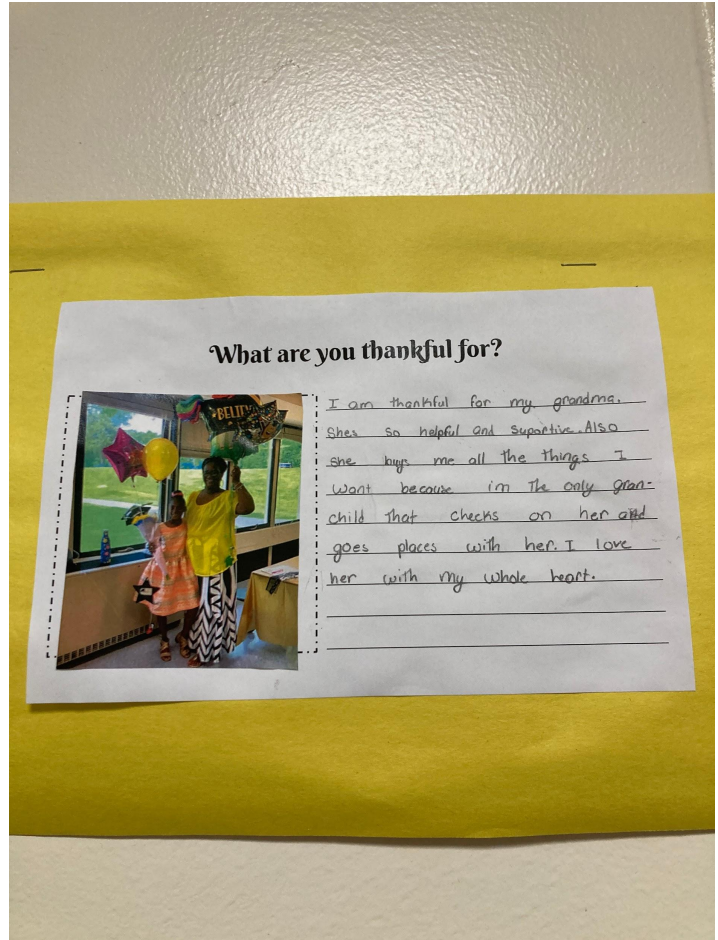 What are you thankful for?
BELIEVE
I am thankful for my grandma.
Shes so helpful and suportive. Also
she buys me all the things I
want because im the only gran-
child that checks on her and
goes places with her. I love
her with my whole heart.